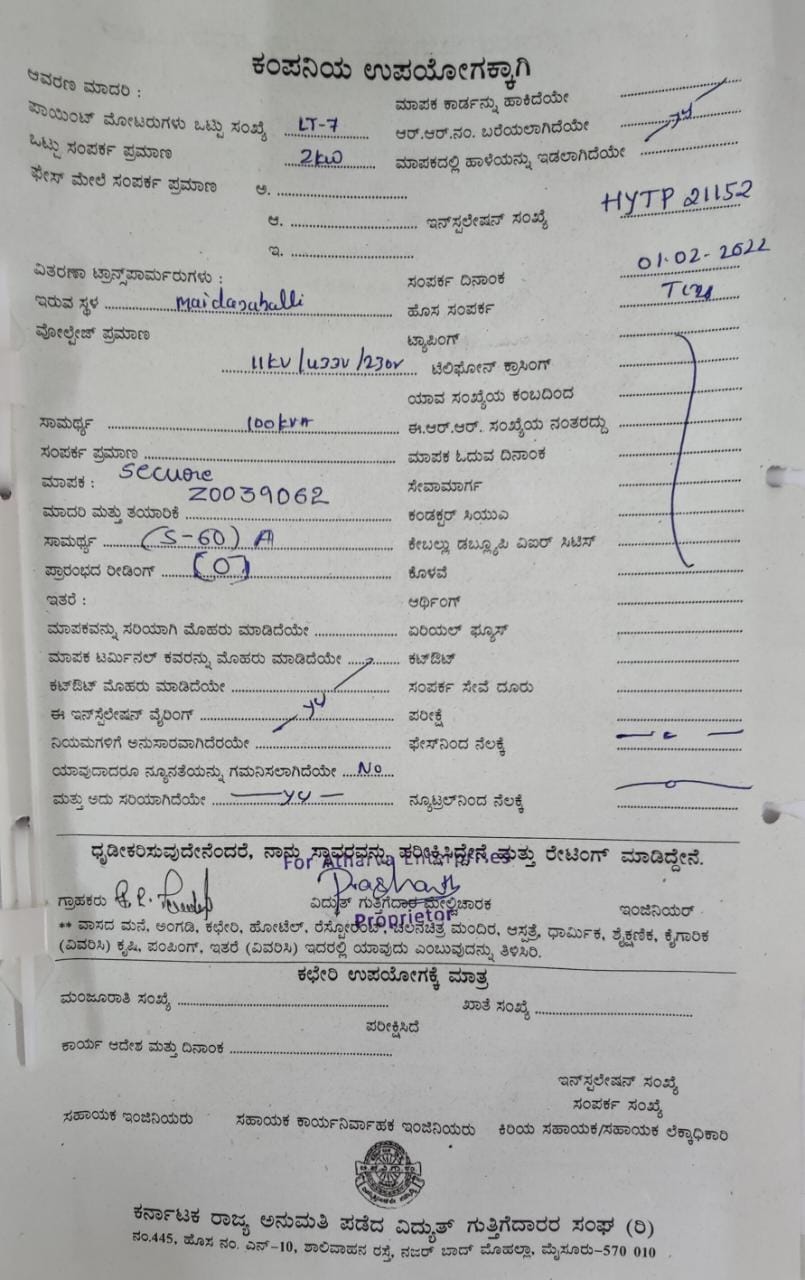 ಕಂಪನಿಯ ಉಪಯೋಗಕ್ಕಾಗಿ
ಆವರಣ ಮಾದರಿ :
ಮಾಪಕ ಕಾರ್ಡನ್ನು ಹಾಕಿದೆಯೇ
ಪಾಯಿಂಟ್ ಮೋಟರುಗಳು ಒಟ್ಟು ಸಂಖ್ಯೆ LT-7
ಆರ್.ಆರ್.ನಂ. ಬರೆಯಲಾಗಿದೆಯೇ
ಒಟ್ಟು ಸಂಪರ್ಕ ಪ್ರಮಾಣ 2kw
ಮಾಪಕದಲ್ಲಿ ಹಾಳೆಯನ್ನು ಇಡಲಾಗಿದೆಯೇ
ಫೇಸ್ ಮೇಲೆ ಸಂಪರ್ಕ ಪ್ರಮಾಣ ಅ.
ಆ. ಇನ್‌ಸ್ಪಲೇಷನ್ ಸಂಖ್ಯೆ HYTP 21152
ಇ.
ವಿತರಣಾ ಟ್ರಾನ್ಸ್‌ಫಾರ್ಮರುಗಳು :
ಸಂಪರ್ಕ ದಿನಾಂಕ 01-02-2022
ಇರುವ ಸ್ಥಳ maidasahalli
ಹೊಸ ಸಂಪರ್ಕ
ವೋಲ್ಟೇಜ್ ಪ್ರಮಾಣ
ಟ್ಯಾಪಿಂಗ್
11kv/433v/230v ಟೆಲಿಫೋನ್ ಕ್ರಾಸಿಂಗ್
ಯಾವ ಸಂಖ್ಯೆಯ ಕಂಬದಿಂದ
ಸಾಮರ್ಥ್ಯ 100kva ಈ.ಆರ್.ಆರ್. ಸಂಖ್ಯೆಯ ನಂತರದ್ದು
ಸಂಪರ್ಕ ಪ್ರಮಾಣ ಮಾಪಕ ಓದುವ ದಿನಾಂಕ
ಮಾಪಕ : secure
Z0039062
ಸೇವಾಮಾರ್ಗ
ಮಾದರಿ ಮತ್ತು ತಯಾರಿಕೆ ಕಂಡಕ್ಟರ್ ಸಿಯುಎ
ಸಾಮರ್ಥ್ಯ (5-60) A ಕೇಬಲ್ಲು ಡಬ್ಲ್ಯೂಪಿ ವಿಐರ್ ಸಿಟಿಸ್
ಪ್ರಾರಂಭದ ರೀಡಿಂಗ್ (0) ಕೊಳವೆ
ಇತರೆ : ಆರ್ಥಿಂಗ್
ಮಾಪಕವನ್ನು ಸರಿಯಾಗಿ ಮೊಹರು ಮಾಡಿದೆಯೇ ಏರಿಯಲ್ ಫ್ಯೂಸ್
ಮಾಪಕ ಟರ್ಮಿನಲ್ ಕವರನ್ನು ಮೊಹರು ಮಾಡಿದೆಯೇ ಕಟ್‌ಔಟ್
ಕಟ್‌ಔಟ್ ಮೊಹರು ಮಾಡಿದೆಯೇ ಸಂಪರ್ಕ ಸೇವೆ ದೂರು
ಈ ಇನ್‌ಸ್ಪೆಲೇಷನ್ ವೈರಿಂಗ್ ಪರೀಕ್ಷೆ
ನಿಯಮಗಳಿಗೆ ಅನುಸಾರವಾಗಿದೆರಯೇ ಫೇಸ್‌ನಿಂದ ನೆಲಕ್ಕೆ
ಯಾವುದಾದರೂ ನ್ಯೂನತೆಯನ್ನು ಗಮನಿಸಲಾಗಿದೆಯೇ No
ಮತ್ತು ಅದು ಸರಿಯಾಗಿದೆಯೇ ನ್ಯೂಟ್ರಲ್‌ನಿಂದ ನೆಲಕ್ಕೆ
ಧೃಡೀಕರಿಸುವುದೇನೆಂದರೆ, ನಾನು ಸ್ಥಾವರವನ್ನು ಪರೀಕ್ಷಿಸಿದ್ದೇನೆ ಮತ್ತು ರೇಟಿಂಗ್ ಮಾಡಿದ್ದೇನೆ.
For Atharva Enterprises
Prashanth
ಗ್ರಾಹಕರು ವಿದ್ಯುತ್ ಗುತ್ತಿಗೆದಾರ ಮೇಲ್ವಿಚಾರಕ ಇಂಜಿನಿಯರ್
Proprietor
** ವಾಸದ ಮನೆ, ಅಂಗಡಿ, ಕಛೇರಿ, ಹೋಟೆಲ್, ರೆಸ್ಟೋರೆಂಟ್, ಚಲನಚಿತ್ರ ಮಂದಿರ, ಆಸ್ಪತ್ರೆ, ಧಾರ್ಮಿಕ, ಶೈಕ್ಷಣಿಕ, ಕೈಗಾರಿಕ
(ವಿವರಿಸಿ) ಕೃಷಿ, ಪಂಪಿಂಗ್, ಇತರೆ (ವಿವರಿಸಿ) ಇದರಲ್ಲಿ ಯಾವುದು ಎಂಬುವುದನ್ನು ತಿಳಿಸಿರಿ.
ಕಛೇರಿ ಉಪಯೋಗಕ್ಕೆ ಮಾತ್ರ
ಮಂಜೂರಾತಿ ಸಂಖ್ಯೆ ಖಾತೆ ಸಂಖ್ಯೆ
ಪರೀಕ್ಷಿಸಿದೆ
ಕಾರ್ಯ ಆದೇಶ ಮತ್ತು ದಿನಾಂಕ
ಇನ್‌ಸ್ಪಲೇಷನ್ ಸಂಖ್ಯೆ
ಸಂಪರ್ಕ ಸಂಖ್ಯೆ
ಸಹಾಯಕ ಇಂಜಿನಿಯರು ಸಹಾಯಕ ಕಾರ್ಯನಿರ್ವಾಹಕ ಇಂಜಿನಿಯರು ಕಿರಿಯ ಸಹಾಯಕ/ಸಹಾಯಕ ಲೆಕ್ಕಾಧಿಕಾರಿ
ಕರ್ನಾಟಕ ರಾಜ್ಯ ಅನುಮತಿ ಪಡೆದ ವಿದ್ಯುತ್ ಗುತ್ತಿಗೆದಾರರ ಸಂಘ (ರಿ)
ನಂ.445, ಹೊಸ ನಂ. ಎನ್-10, ಶಾಲಿವಾಹನ ರಸ್ತೆ, ನಜರ್ ಬಾದ್ ಮೊಹಲ್ಲಾ, ಮೈಸೂರು-570 010